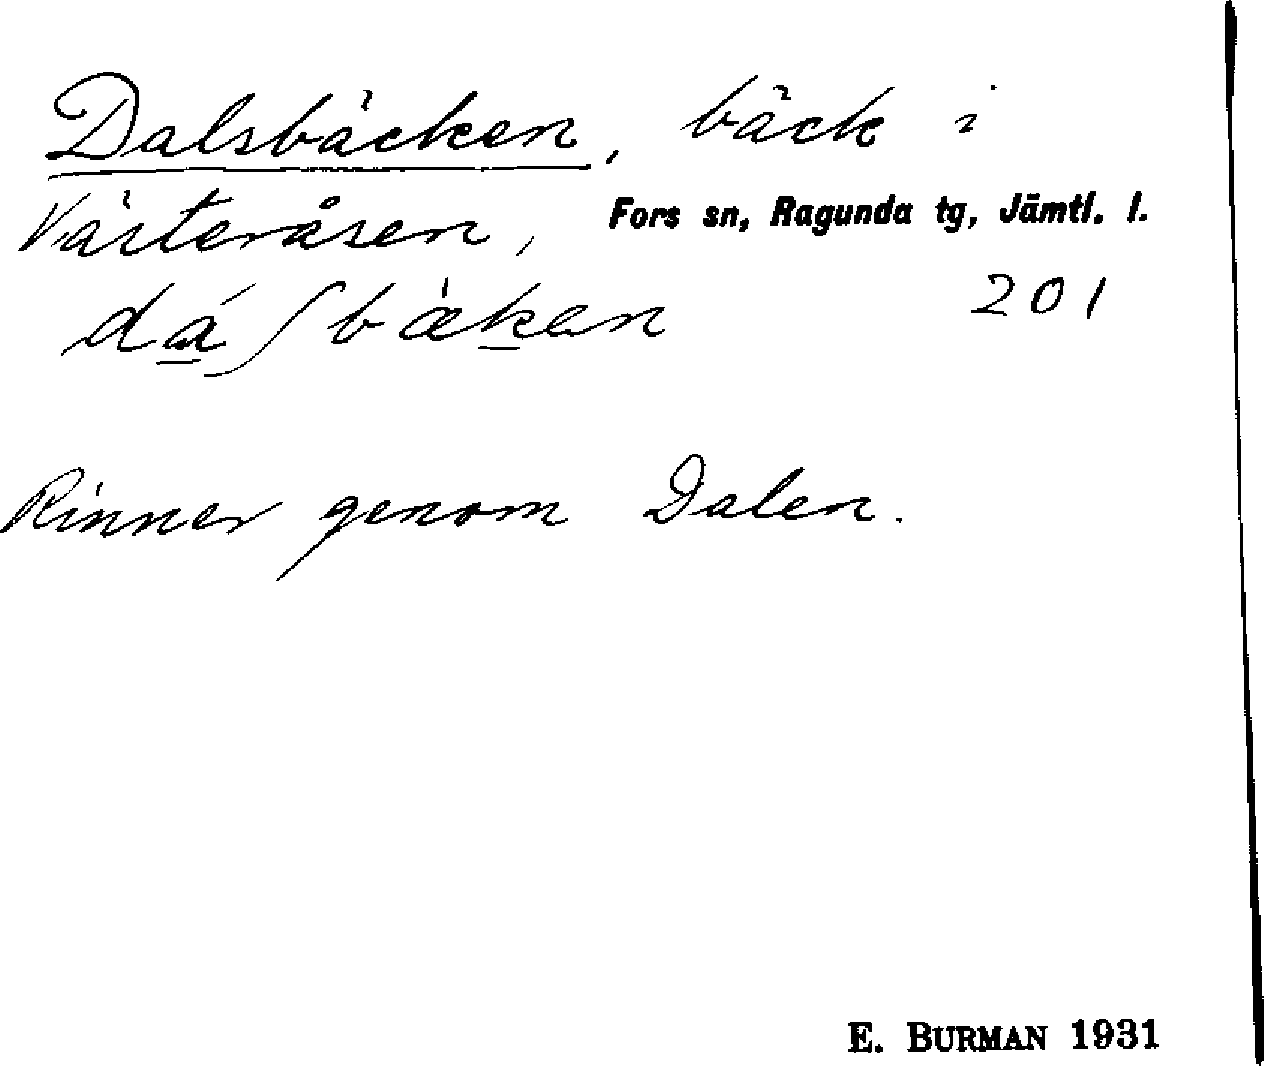 Dalsbäcken, bäck i
Västeråsen, Fors sn, Ragunda tg, Jämtl. l.
dáʃbæ̀ken 201
Rinner genom Dalen.
E. BURMAN 1931